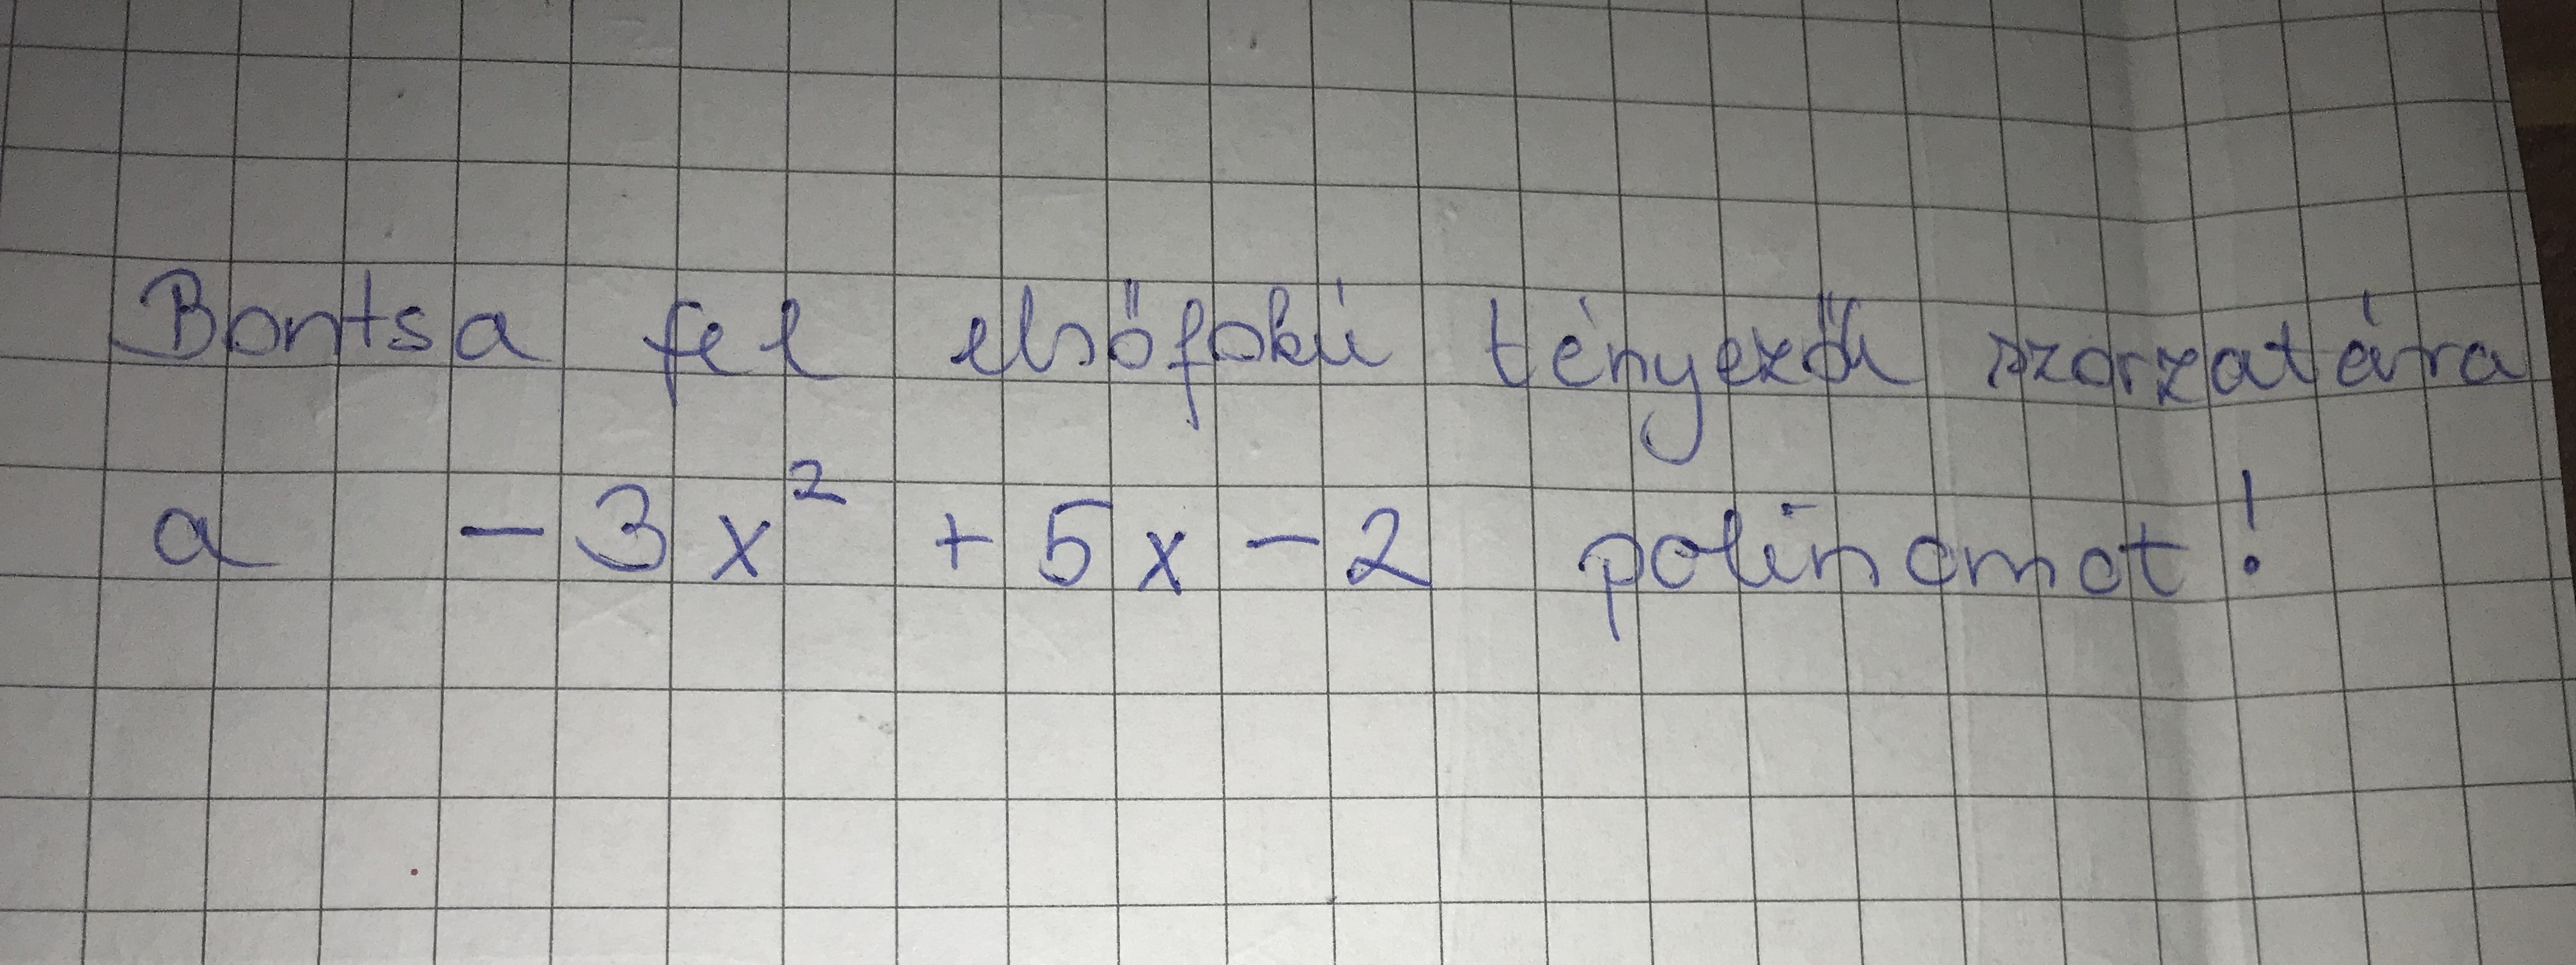 Bontsa fel elsőfokú tényezők szorzatára
a -3x² + 5x - 2 polinomot!